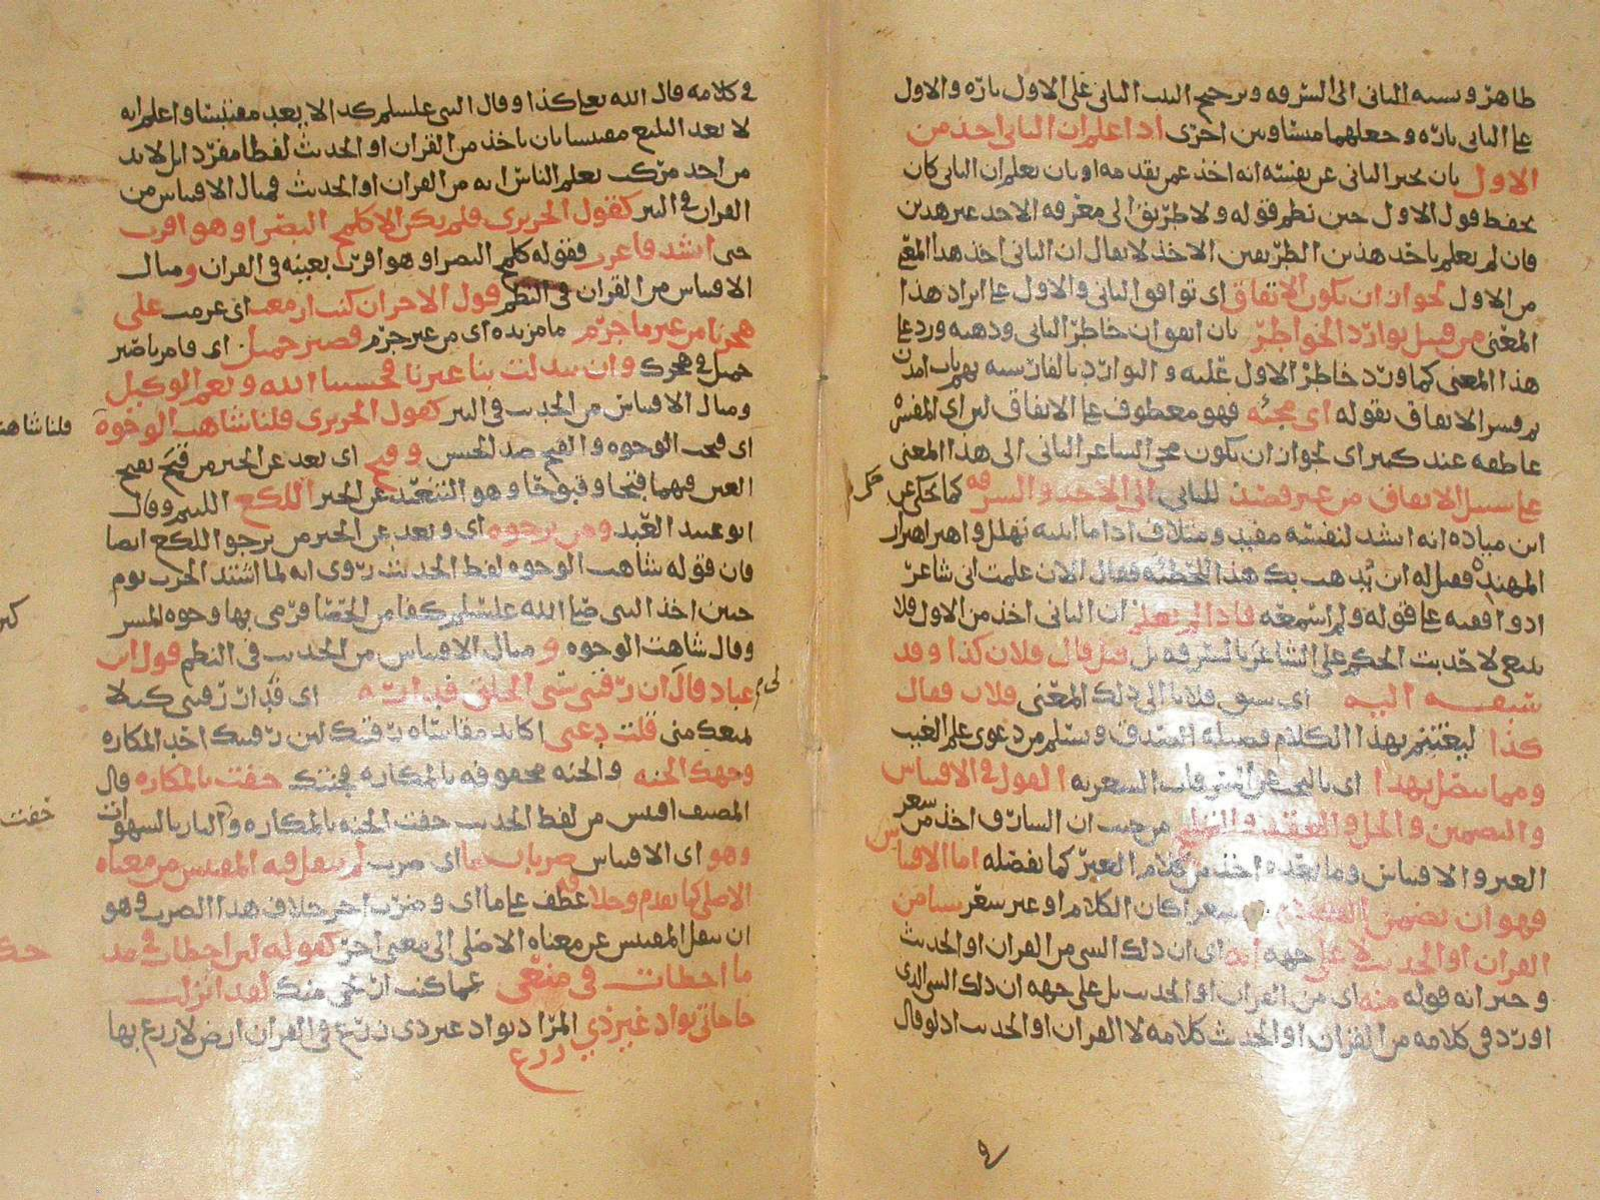 ظاهر ونسبه الثاني الى السرقه وترجيح البيت الثاني على الاول تارة والاول
على الثاني تارة وجعلهما متساويين اخرى اذا علم ان الثاني اخذ من
الاول بان يخبر الثاني عن نفسه انه اخذ عمن تقدمه او بان يعلم ان الثاني كان
يحفظ قول الاول حين نظم قوله ولا طريق الى معرفه الاخذ غير هذين
فان لم يعلم باحد هذين الطريقين الاخذ لا يقال ان الثاني اخذ هذا المعنى
من الاول لجواز ان يكون الاتفاق اى توافق الثاني والاول على ايراد هذا
المعنى من قبيل توارد الخواطر بان اتفق ان خاطر الثاني وذهنه ورد على
هذا المعنى كما ورد خاطر الاول عليه والتوارد بالفارسيه
ثم فسر الاتفاق بقوله اى مجئه فهو معطوف على الاتفاق لبى اى المفسر
عاطفه عند كثير اى لجواز ان يكون مجئ الشاعر الثاني الى هذا المعنى
على سبيل الاتفاق من غير قصد للثاني الى الاخذ والسرقه كما يحكى عن
ابن مياده انه انشد لنفسه مفيد ومتلاف اذا ما اتيته تهلل واهتز اهتزاز
المهند فقيل له اين يذهب بك هذا للحطيئه فقال الان علمت انى شاعر
اذ وافقته على قوله ولم اسمعه فاذا لم يعلم ان الثاني اخذ من الاول فلا
ينبغي لاحد بت الحكم على الشاعر بالسرقه بل قيل قال فلان كذا وقد
سبقه اليه اى سبق فلانا الى ذلك المعنى فلان فقال
كذا ليغتنم بهذا الكلام فضيله الصدق ويسلم من دعوى علم الغيب
ومما يتصل بهذا اى بالبحث عن السرقات الشعريه القول فى الاقتباس
والتضمين والحل والعقد والتلميح من حيث ان السارق اخذ من شعر
الغير والاقتباس وما بعده اخذ من كلام الغير كما نفصله اما الاقتباس
فهو ان تضمن الكلام شعرا كان الكلام او غير شعر شيئا من
القران او الحديث لا على جهه انه اى ان ذلك الشى من القران او الحديث
وخبر انه قوله منه اى من القران او الحديث بل على جهه ان ذلك الشى الذى
اورد فى كلامه من القران او الحديث كلامه لا القران او الحديث اذ لو قال
فى كلامه قال الله تعالى كذا وقال النبى عليسلم كذا لا يعد مقتبسا واعلم انه
لا يعد البليغ مقتبسا بان ياخذ من القران او الحديث لفظا مفردا بل لا بد
من اخذ مركب يعلم الناس انه من القران او الحديث فمثال الاقتباس من
القران فى النثر كقول الحريرى فلم يكن الا كلمح البصر او هو اقرب
حتى انشد فاغرب فقوله كلمح البصر او هو اقرب بعينه فى القران ومثال
الاقتباس من القران فى النظم قول الاخر ان كنت ازمعت اى عزمت على
هجرنا من غير ما جرم ما مزيده اى من غير جرم فصبر جميل اى فامرنا صبر
جميل فى هجرك وان تبدلت بنا غيرنا فحسبنا الله ونعم الوكيل
ومثال الاقتباس من الحديث فى النثر كقول الحريرى قلنا شاهت الوجوه
اى قبحت الوجوه والقبح ضد الحسن وقبح اى بعد عن الخير من قبح بفتح
العين فيهما قبحا وقبوحا وهو التبعيد عن الخير اللكع اللئيم وقال
ابو عبيد العبد ومن يرجوه اى وبعد عن الخير من يرجو اللكع ايضا
فان قوله شاهت الوجوه لفظ الحديث روى انه لما اشتد الحرب يوم
حنين اخذ النبى صلى الله عليسلم كفا من الحصا فرمى بها وجوه المشركين
وقال شاهت الوجوه ومثال الاقتباس من الحديث فى النظم قول ابن
عباد قال لى ان رقيبى سئ الخلق فداره اى فدار رقيبى كيلا
يمنعك منى قلت دعنى اكابد مقاساه رقيبك لين رقيبك احد المكاره
وجهك الجنه والجنه محفوفه بالمكاره فجنتك حفت بالمكاره قال
المصنف اقتبس من لفظ الحديث حفت الجنه بالمكاره والنار بالشهوات
وهو اى الاقتباس ضربان احدهما اى ضرب لم ينقل فيه المقتبس من معناه
الاصلى كما تقدم وخلافه عطف على ما اى وضرب اخر خلاف هذا الضرب وهو
ان ينقل المقتبس عن معناه الاصلى الى معنى اخر كقوله لئن اخطات فى مد
ما اخطات فى منعى عما كنت ان تجى منك لقد انزلت
حاجاتى بواد غير ذي المراد بواد غير ذى زرع فى القران ارض لا زرع بها
زرع